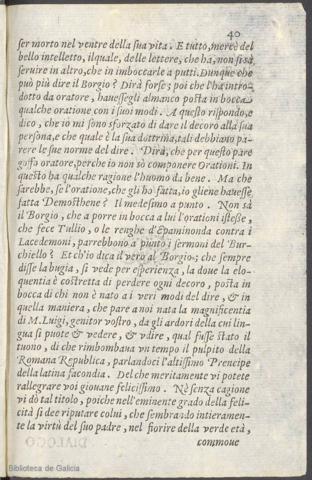 40
ser morto nel ventre della sua vita. E tutto, mercè del
bello intelletto, ilquale, delle lettere, che ha, non si sà
seruire in altro, che in imboccarle a putti. Dunque che
può più dire il Borgio? Dirà forse; poi che l'ha intro-
dotto da oratore, hauessegli almanco posta in bocca
qualche oratione con i suoi modi. A questo rispondo,
e dico, che io mi sono sforzato di dare il decoro alla sua
persona, e che quale è la sua dottrina, tali debbiano pa-
rere le sue norme del dire. Dirà, che per questo pare
goffo oratore, perche io non sò componere Orationi. In
questo ha qualche ragione l'huomo da bene. Ma che
sarebbe, se l'oratione, che gli ho fatta, io gliene hauesse
fatta Demosthene? Il medesimo a punto. Non sà
il Borgio, che a porre in bocca a lui l'orationi istesse,
che fece Tullio, o le renghe d'Epaminonda contra i
Lacedemoni, parrebbono a punto i sermoni del Bur-
chiello? Et ch'io dica il vero al Borgio; che sempre
disse la bugia, si vede per esperienza, la doue la elo-
quentia è costretta di perdere ogni decoro, posta in
bocca di chi non è nato a i veri modi del dire, & in
quella maniera, che pare a noi nata la magnificentia
di M. Luigi, genitor vostro, da gli ardori della cui lin-
gua si puote & vedere, & vdire, qual fusse stato il
tuono, di che rimbombaua vn tempo il pulpito della
Romana Republica, parlandoci l'altissimo Prencipe
della latina facondia. Del che meritamente vi potete
rallegrare voi giouane felicissimo. Nè senza cagione
vi dò tal titolo, poiche nell'eminente grado della feli-
cità si dee riputare colui, che sembrando intieramen-
te la virtù del suo padre, nel fiorire della verde età,
commoue
Biblioteca de Galicia